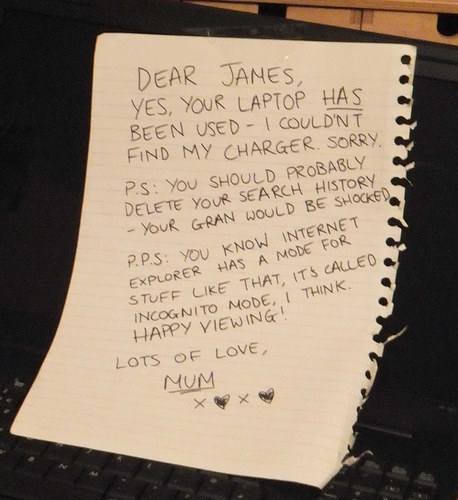 DEAR JAMES,
YES, YOUR LAPTOP HAS
BEEN USED - I COULDN'T
FIND MY CHARGER. SORRY.
P.S: YOU SHOULD PROBABLY
DELETE YOUR SEARCH HISTORY
- YOUR GRAN WOULD BE SHOCKED
P.P.S: YOU KNOW INTERNET
EXPLORER HAS A MODE FOR
STUFF LIKE THAT, IT'S CALLED
INCOGNITO MODE, I THINK.
HAPPY VIEWING!
LOTS OF LOVE,
MUM
x ♥ x ♥